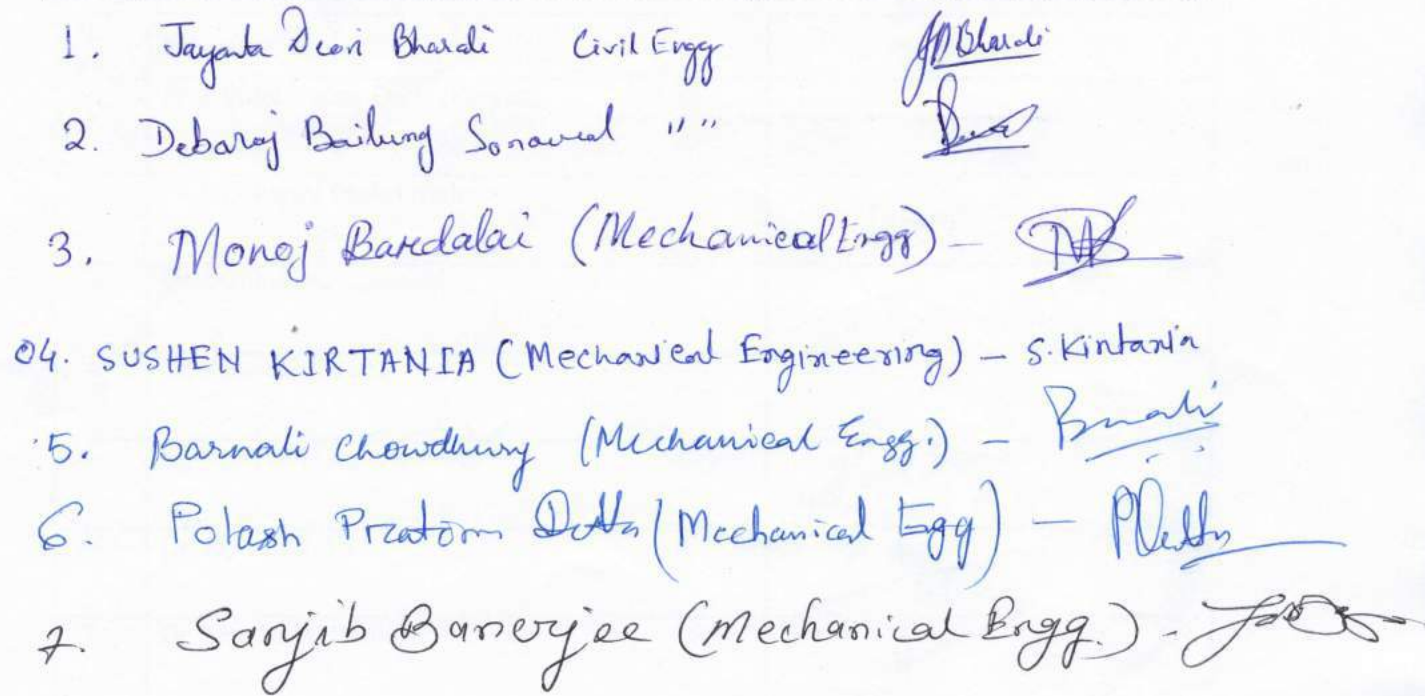 1. Jayanta Deori Bharali Civil Engg JDBharali
2. Debaraj Bailung Sonowal " "
3. Monoj Bardalai (Mechanical Engg) -
04. SUSHEN KIRTANIA (Mechanical Engineering) - S. Kirtania
5. Barnali Chowdhury (Mechanical Engg.) - Barnali
6. Polash Pratim Dutta (Mechanical Egg) - PDutta
7. Sanjib Banerjee (Mechanical Engg.) -